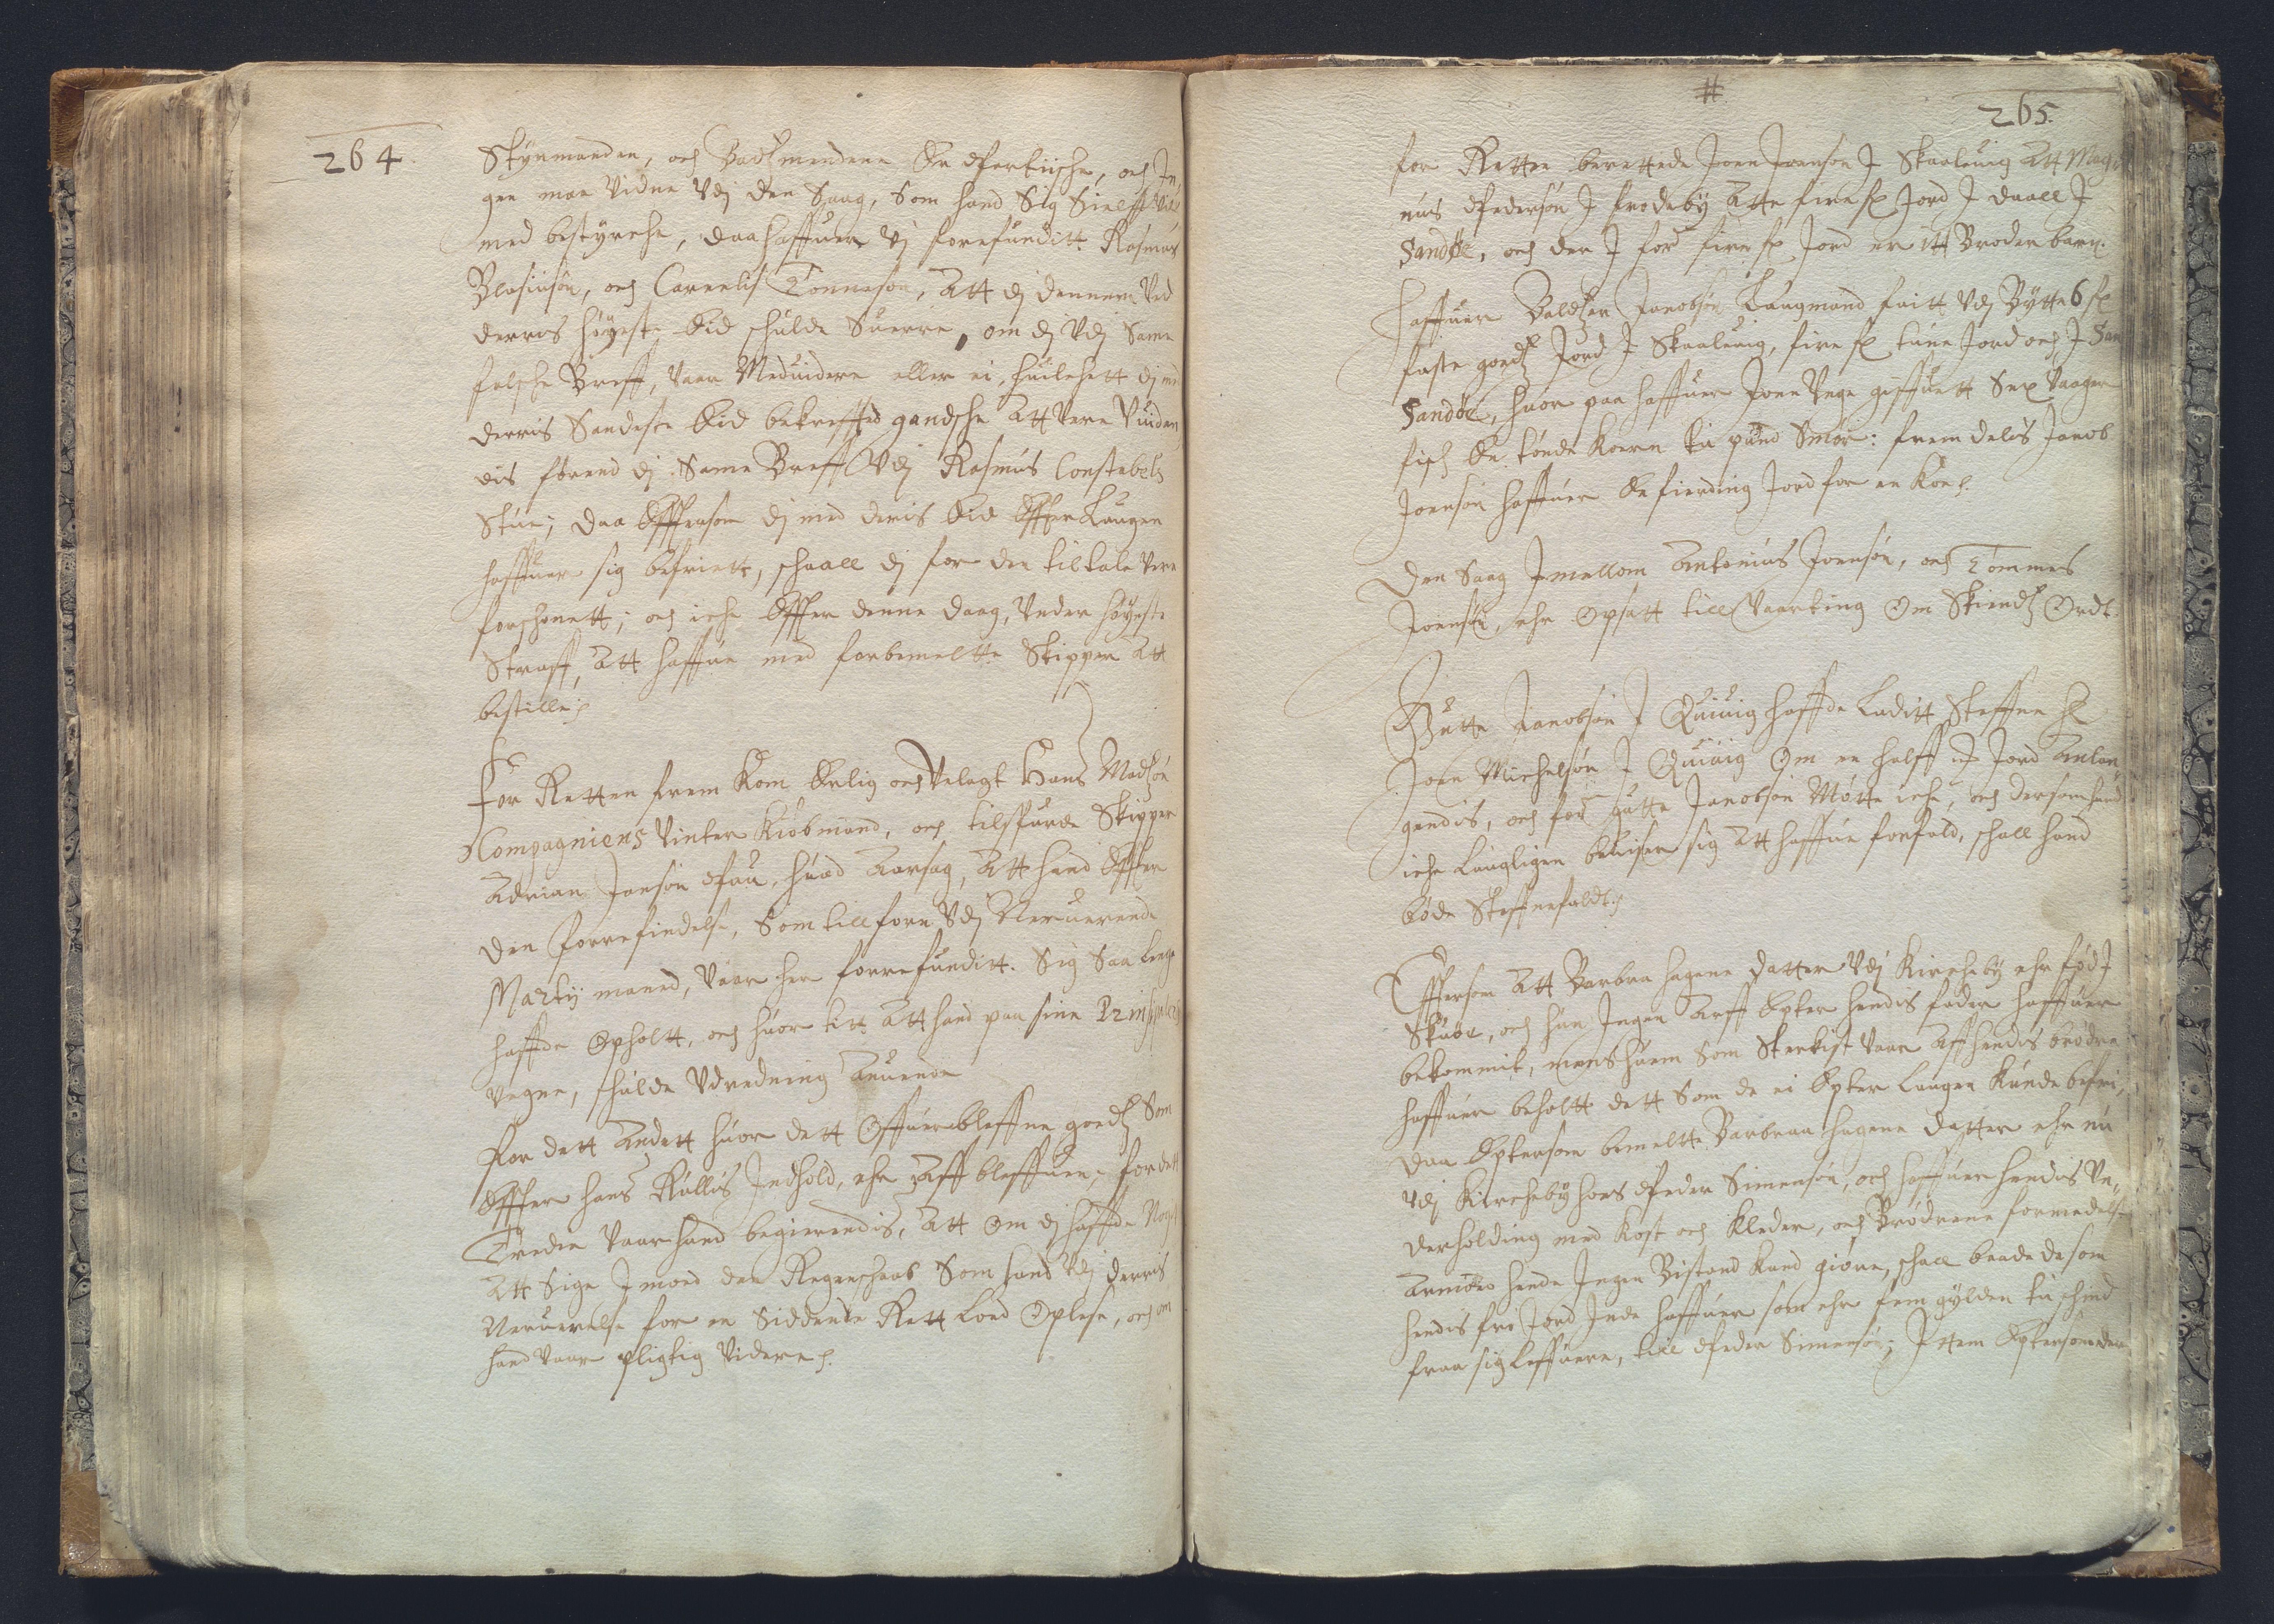 264.
Skynmanden, och Baadsmendene Er Partiische, och In,
gen maa Vidne Vdj den Saag, Som hand Sig Sielff Vil
med bestyrche, daa haffuer Vj forefunditt Rasmus
Blasiusøn, och Carnelis Tonneson, Att dj dennem Ved
derris høyeste Eid schulde Suerre, om dj Vdj Same
falsche Breff, Vaar Meduidere eller ei, huilchett dj med
derris Sandeste Eid bekrefftede gandsche Att Vere Vuiden,
dis førend dj Same Breff Vdj Rasmus Constabels
Stue; daa Effterson dj med deris Eid Effter Laugen
haffuer sig befriett, schaall dj for den tiltale Vere
forschonett; och iche Effter denne daag, Vnder høyeste
Straff, Att haffue med forbemeltte Skipper Att
bestille.
For Retten frem kom Erlig och Velagt Hans Madsøn
Compagniens Vinter Kiøbmand, och tilspurde Skipper
Adrian Jansøn Pau, huad Aarsag, Att hand Effter
den forrefindelse, Som till forn Vdj Neruerende
Martij maned, Vaar her forrefunditt. Sig Saa lenge
haffde Opholtt, och huor titt Att hand paa sine Prinsipalers
Vegne, schulde Vdredning Anuende
For dett Andett huor dett Offuerbleffne goeds Som
Effter hans Rullis Indhold, ehr Aff bleffuen; for dett
Tredie Vaar hand begierendis, Att Om dj haffde Noget
Att Sige J moed den Regenschaab Som hand Vdj derris
Neruerelse for en Siddende Rett Loed Oplese, och om
hand Vaar pligtig Videre.
#
265.
for Retten berettede Joen Joensøn J Skaaleuig Att Mag,
nus Pedersøn J Frodeby Atte fire fl Jord J daall J
Sandøe, och der J for fire fl Jord er itt Broder barn.
Haffuer Baldtzer Jacobsøn Laugmand faitt Vdj Bytte 6 fl
faste goeds Jord J Skaaleuig, fire fl tune Jord och J San
Sandøe, huor paa haffuer Joen Unge giffuett Sex Vaager
fisch En tønde Koern tu pund Smør: frem delis Jacob
Joensøn haffuer En fierding Jord for en Koe.
Den Saag Jmellom Antonius Joensøn, och Tommes
Joensøn, ehr Opsatt till Vaarting Om Skiends Ordt.
Gutte Jacobsøn J Quiuig haffde Laditt Steffne
Joen Michelsøn J Quiuig Om en halff Jord Anlan,
gendis, och for Gutte Jacobsøn Møtte iche, och dersom hand
iche Laugligen beuiser sig Att haffue forfald, schall hand
bøde Steffnefaldt.
Effterson Att Barbra hagene datter Vdj Kircheby ehr fød J
Skuøe, och hun Ingen Arff Epter hendis fader haffuer
bekommit, mens huem Som Sterkist Vaar Aff hendis brødre
haffuer beholtt dett Som de ei Epter Laugen Kunde befri,
daa Epterson bemeltte Barbraa hagene datter ehr nu
Vdj Kircheby hoes Peder Simensøn, och haffuer hendis Vn,
derholding med Kost och Kleder, och Brødrene formedelst
Armod hende Ingen Bistand kand giøre, schall baade de som
hendis fri Jord Inde haffuer som ehr fem gylden tu schind
fraa sig leffuere, till Peder Simensøn; Ittem Epterson den